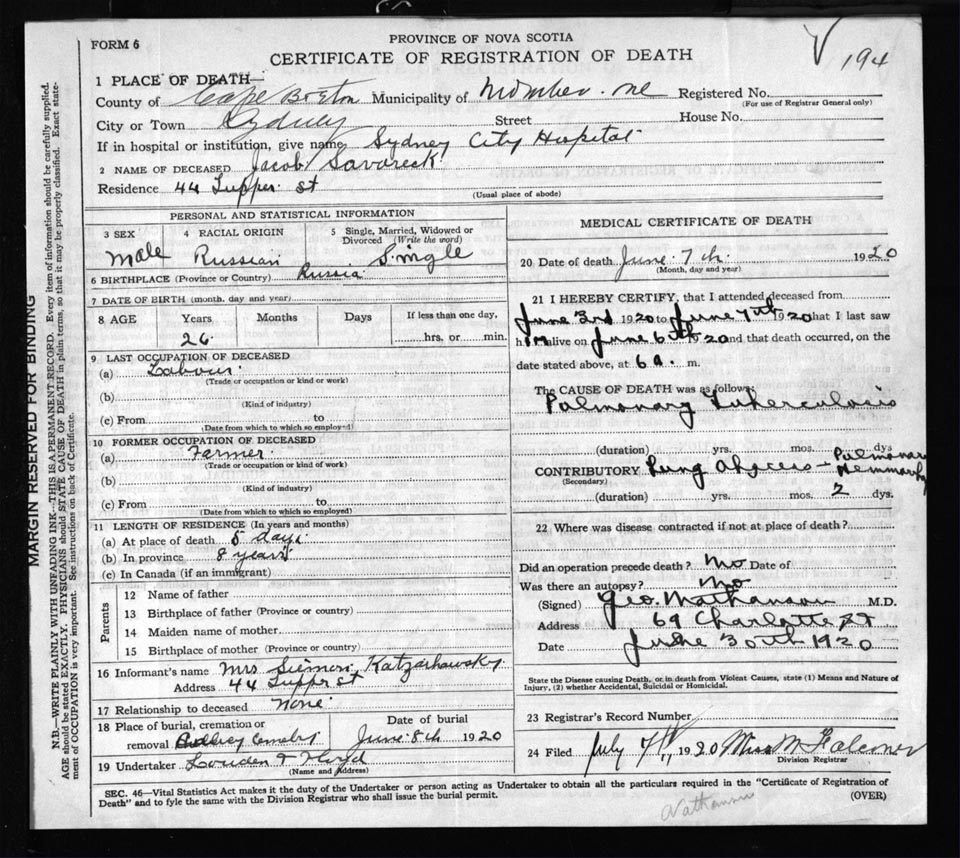 FORM 6
PROVINCE OF NOVA SCOTIA
CERTIFICATE OF REGISTRATION OF DEATH
194
1 PLACE OF DEATH—
County of Cape Breton Municipality of Number one Registered No.
(For use of Registrar General only)
City or Town Sydney Street House No.
If in hospital or institution, give name Sydney City Hospital
2 NAME OF DECEASED Jacob Savareck
Residence 44 Tupper st
(Usual place of abode)
PERSONAL AND STATISTICAL INFORMATION
3 SEX 4 RACIAL ORIGIN 5 Single, Married, Widowed or Divorced (Write the word)
Male Russian Single
6 BIRTHPLACE (Province or Country) Russia
7 DATE OF BIRTH (month, day and year)
8 AGE Years Months Days If less than one day,
26 hrs. or min.
9 LAST OCCUPATION OF DECEASED
(a) Labour
(Trade or occupation or kind or work)
(b)
(Kind of industry)
(c) From to
(Date from which to which so employed)
10 FORMER OCCUPATION OF DECEASED
(a) Farmer
(Trade or occupation or kind of work)
(b)
(Kind of industry)
(c) From to
(Date from which to which so employed)
11 LENGTH OF RESIDENCE (In years and months)
(a) At place of death 5 days
(b) In province 8 years
(c) In Canada (if an immigrant)
Parents
12 Name of father
13 Birthplace of father (Province or country)
14 Maiden name of mother
15 Birthplace of mother (Province or country)
16 Informant's name Mrs Siemon
Address 44 Tupper st
17 Relationship to deceased None
18 Place of burial, cremation or Date of burial
removal June 8th 1920
19 Undertaker Louden & Floyd
(Name and Address)
MEDICAL CERTIFICATE OF DEATH
20 Date of death June 7th 1920
(Month, day and year)
21 I HEREBY CERTIFY, that I attended deceased from
June 3rd 1920 to June 7th 1920 that I last saw
him alive on June 6th 1920 and that death occurred, on the
date stated above, at 6 a. m.
The CAUSE OF DEATH was as follows:
Pulmonary Tuberculosis
(duration) yrs. mos. dys
CONTRIBUTORY Lung Abscess + Pulmonary
(Secondary)
(duration) yrs. mos. 2 dys.
22 Where was disease contracted if not at place of death?
Did an operation precede death? No Date of
Was there an autopsy? No
(Signed) Geo. Nathanson M.D.
Address 69 Charlotte St
Date June 30th 1920
State the Disease causing Death, or in death from Violent Causes, state (1) Means and Nature of
Injury, (2) whether Accidental, Suicidal or Homicidal.
23 Registrar's Record Number
24 Filed July 7th 1920 Miss M Falconer
Division Registrar
SEC. 46—Vital Statistics Act makes it the duty of the Undertaker or person acting as Undertaker to obtain all the particulars required in the "Certificate of Registration of
Death" and to fyle the same with the Division Registrar who shall issue the burial permit.
(OVER)
Nathanson
MARGIN RESERVED FOR BINDING
N.B.—WRITE PLAINLY WITH UNFADING INK—THIS IS A PERMANENT RECORD. Every item of information should be carefully supplied.
AGE should be stated EXACTLY. PHYSICIANS should STATE CAUSE OF DEATH in plain terms, so that it may be properly classified. Exact state-
ment of OCCUPATION is very important. See instructions on back of Certificate.